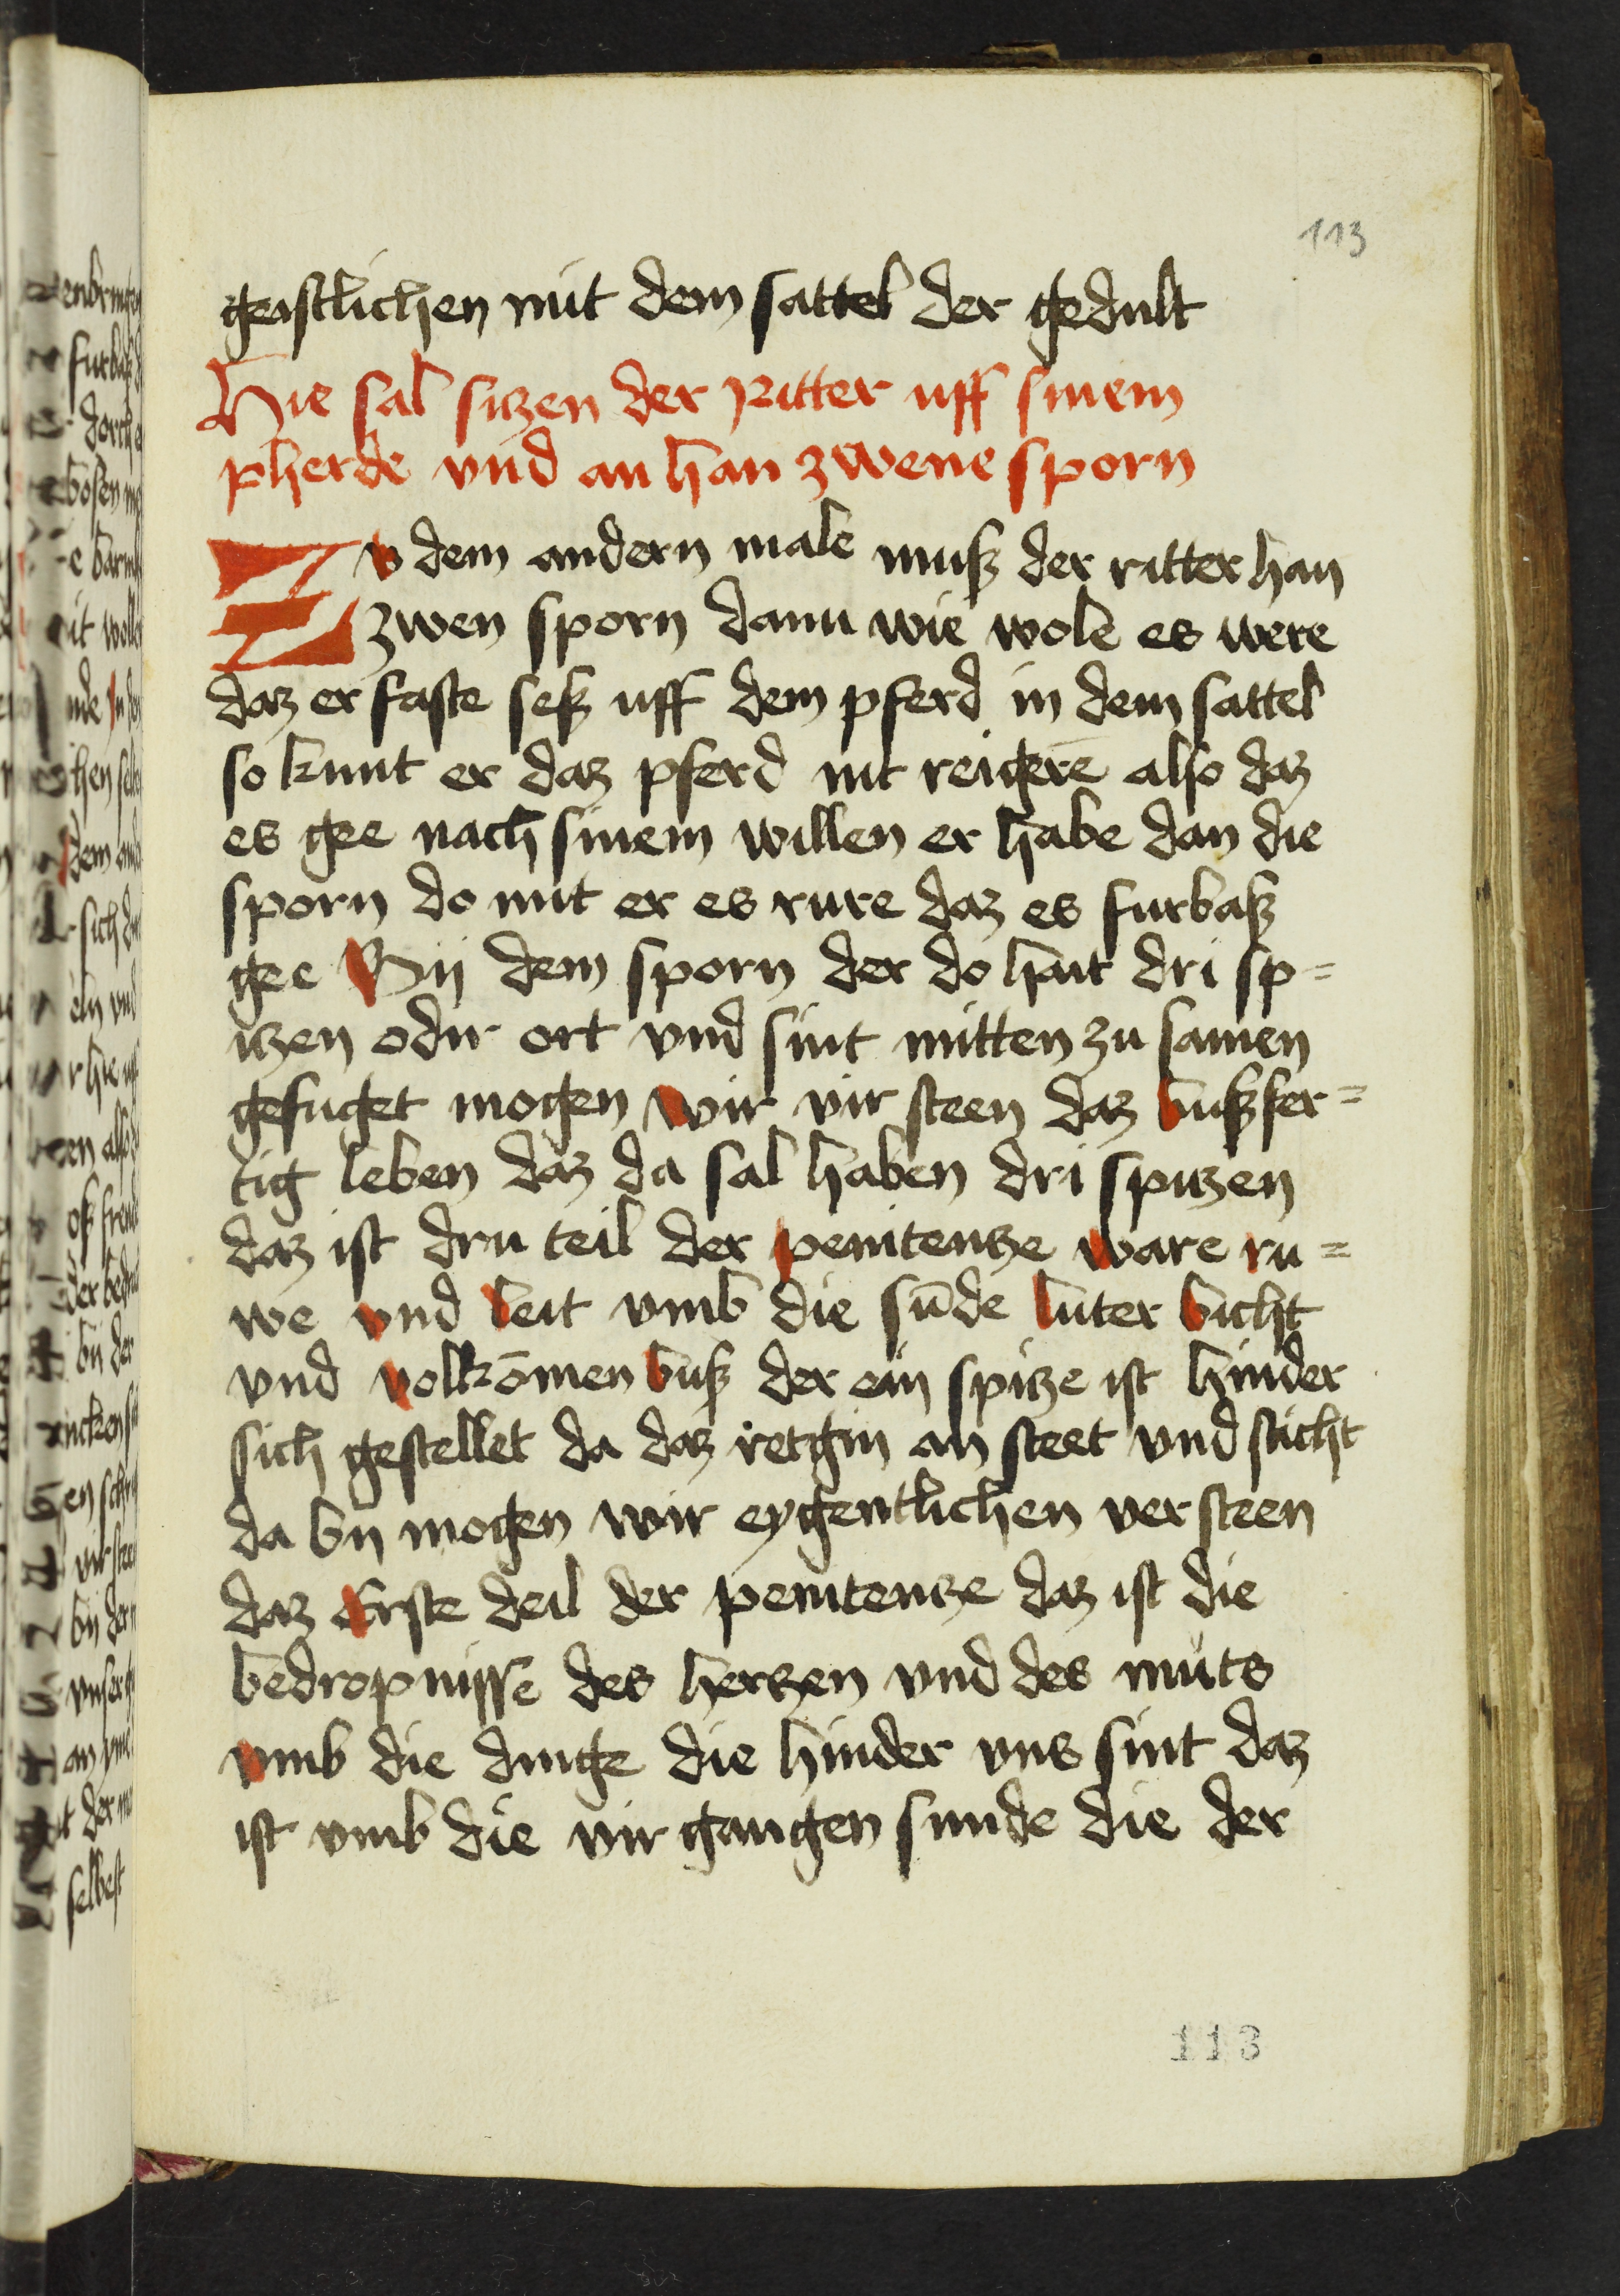 113
geistlichen mit dem sattel der gedult
Hie sal sitzen der Ritter uff sinem
pherde vnd an han zwene sporn
Zv dem andern male muß der ritter han
zwen sporn dann wie wole es were
daz er faste seß uff dem pferd in dem sattel
so kunt er daz pferd nit reigerē also daz
es gee nach sinem willen er habe dan die
sporn do mit er es rure daz es furbaß
gee Bij dem sporn der do hait dri sp=
itzen odir ort vnd sint mitten zu samen
gefuget mogen wir vir steen daz bußfer=
tig leben daz da sal haben dri spitzen
daz ist dru teil der penitentze ware ru=
we vnd leit vmb die sūde luter bicht
vnd volkōmen buß der ein spitze ist hinder
sich gestellet da daz retgin an steet vnd sticht
da bij mogen wir eygentlichen ver steen
daz erste deil der penitentze daz ist die
bedropnisse des hertzen vnd des muts
vmb die dinge die hinder vns sint daz
ist vmb die vir gangen sunde die der
113